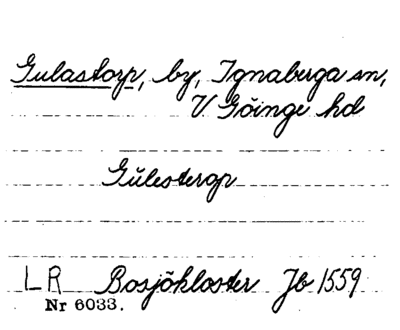 Gulastorp, by, Ignaberga sn,
V Göinge hd
Gŭlesterop
LR Bosjökloster Jb 1559
Nr 6033.